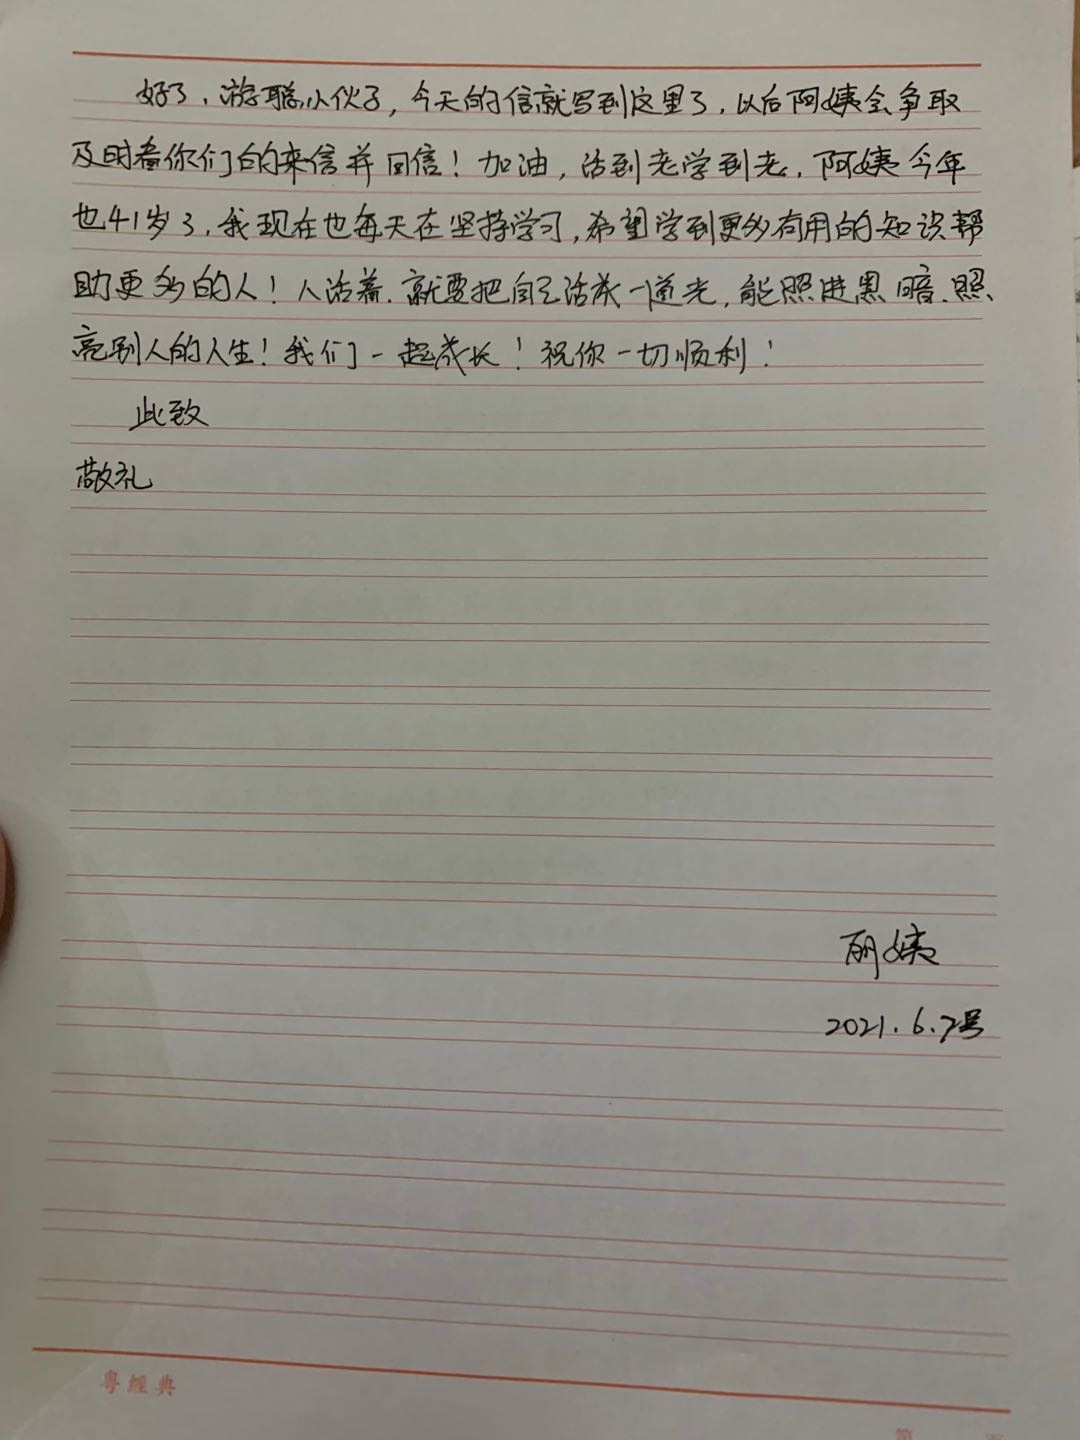 好了，游聪小伙子，今天的信就写到这里了，以后阿姨会争取
及时看你们的来信并回信！加油，活到老学到老，阿姨今年
也41岁了，我现在也每天在坚持学习，希望学到更多有用的知识帮
助更多的人！人活着，就要把自己活成一道光，能照进黑暗、照
亮别人的人生！我们一起成长！祝你一切顺利！
此致
敬礼
丽姨
2021.6.7号
粤經典
第 页